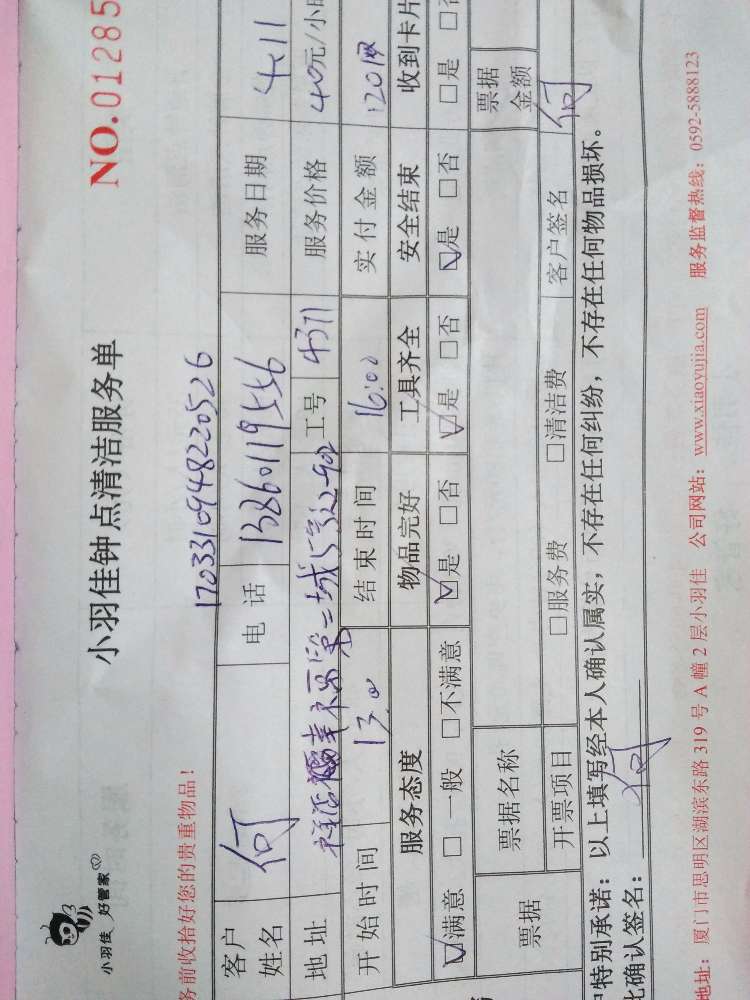 小羽佳 好管家
小羽佳钟点清洁服务单
NO.01285
务前收拾好您的贵重物品!
17033109948220526
客户姓名 何 电话 13860119556 服务日期 4.11
地址 二城 902 工号 4371 服务价格 40元/小时
开始时间 13.0 结束时间 16:00 实付金额 120
服务态度 物品完好 工具齐全 安全结束 收到卡片
☑满意 □一般 □不满意 ☑是 □否 ☑是 □否 ☑是 □否 □是 □否
票据 票据名称 票据金额
开票项目 □服务费 □清洁费 客户签名 何
特别承诺:以上填写经本人确认属实,不存在任何纠纷,不存在任何物品损坏。
此确认签名: 何
地址:厦门市思明区湖滨东路 319 号 A 幢 2 层小羽佳 公司网站:www.xiaoyujia.com 服务监督热线:0592-5888123